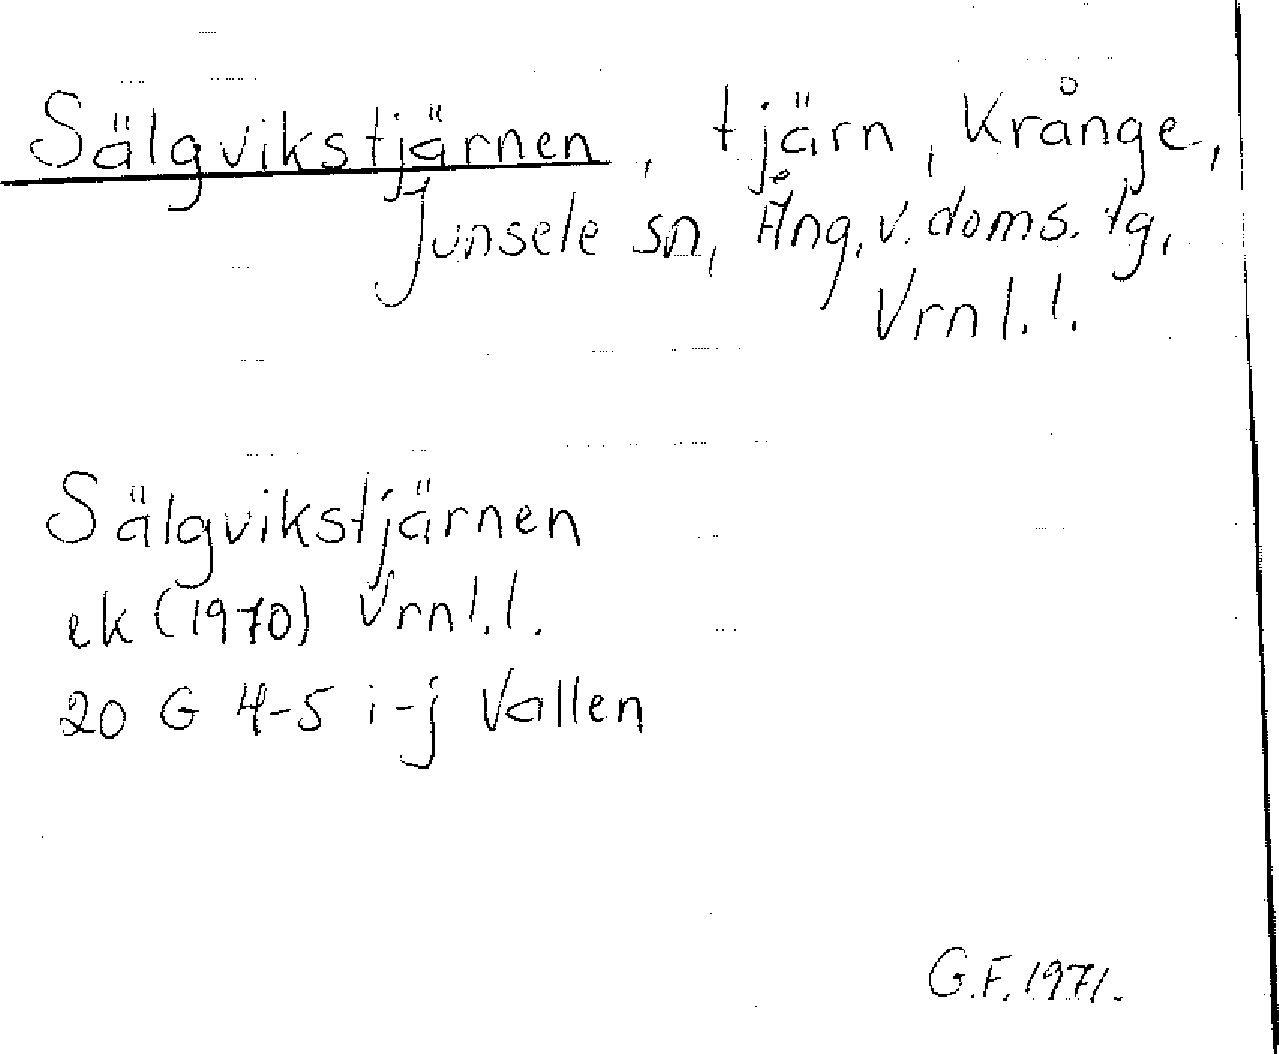 Sälgvikstjärnen, tjärn, Krånge,
Junsele sn, Ång. v. doms. tg,
Vrnl. l.
Sälgvikstjärnen
ek (1970) Vrnl. l.
20 G 4-5 i-j Vallen
G.F. 1971.